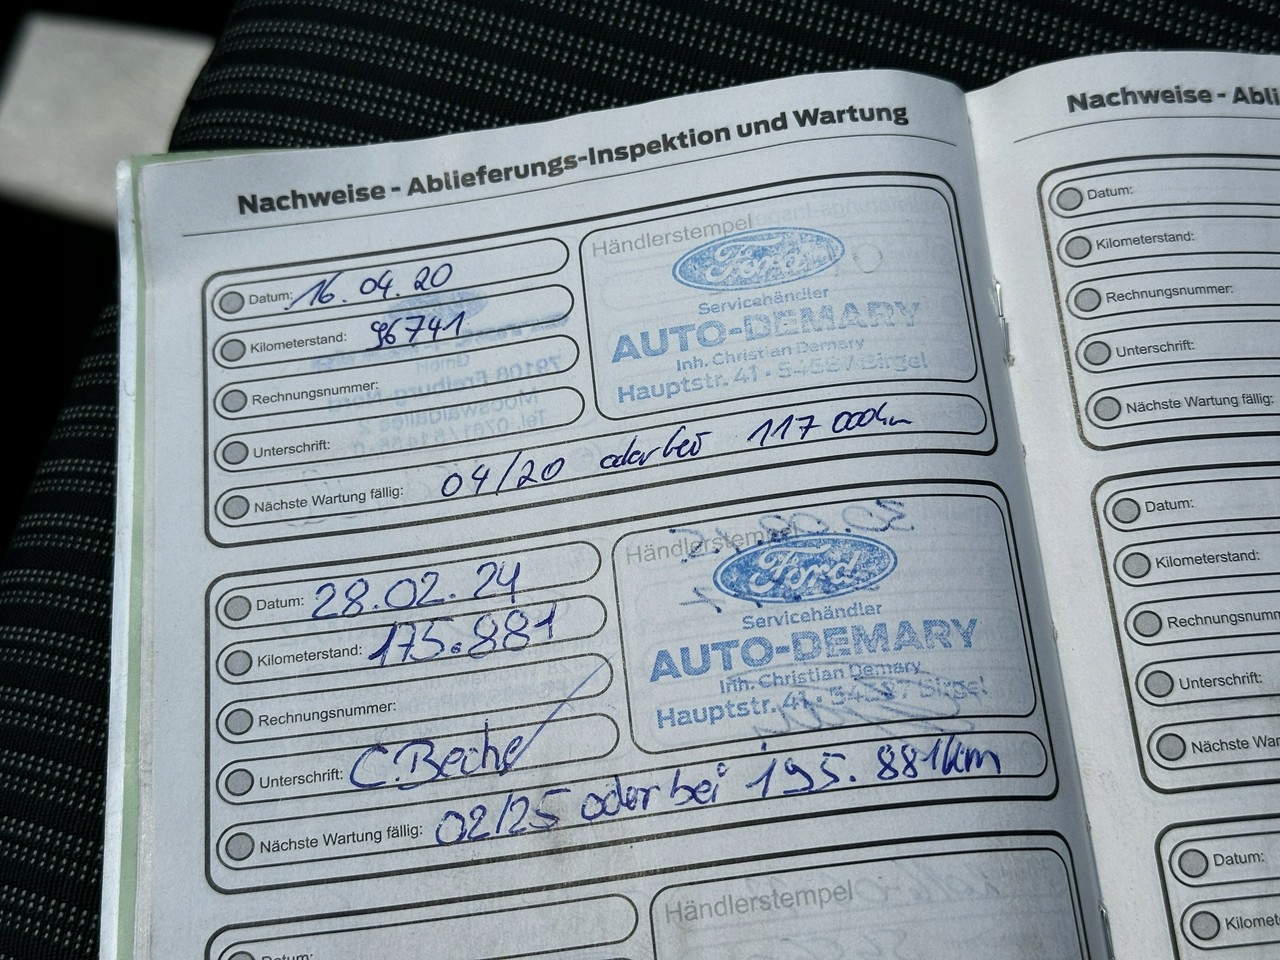 Nachweise - Ablieferungs-Inspektion und Wartung
Datum: 16.04.20
Kilometerstand: 96741
Rechnungsnummer:
Unterschrift:
Nächste Wartung fällig: 04/20 oder bei 117 000km
Händlerstempel
Ford
Servicehändler
AUTO-DEMARY
Inh. Christian Demary
Hauptstr. 41 - 54587 Birgel
Datum: 28.02.24
Kilometerstand: 175.881
Rechnungsnummer:
Unterschrift:
Nächste Wartung fällig: 02/25 oder bei 195.881km
Händlerstempel
Ford
Servicehändler
AUTO-DEMARY
Inh. Christian Demary
Hauptstr. 41 - 54587 Birgel
Datum:
Händlerstempel
Nachweise - Abli
Datum:
Kilometerstand:
Rechnungsnummer:
Unterschrift:
Nächste Wartung fällig:
Datum:
Kilometerstand:
Rechnungsnumm
Unterschrift:
Nächste War
Datum:
Kilomet